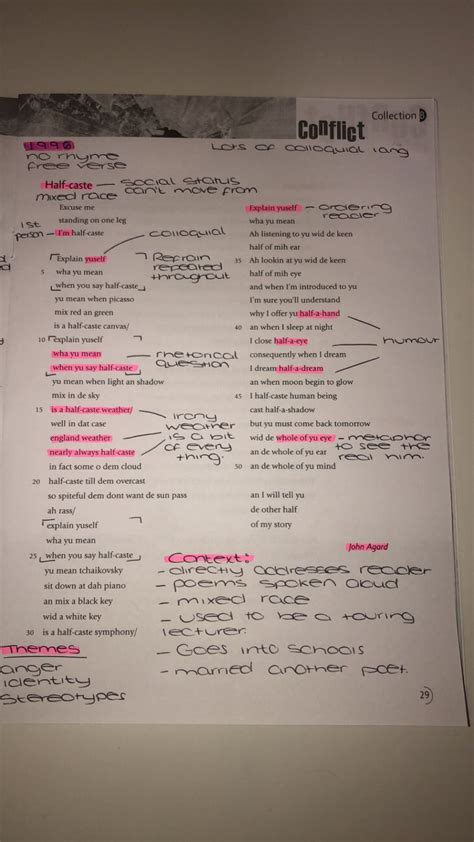 Collection 8
Conflict
1996
no rhyme
free verse
Lots of colloquial lang
Half-caste — social status
can't move from
mixed race
Excuse me
standing on one leg
1st
person — I'm half-caste
colloquial
Explain yuself
Refrain
repeated
throughout
5 wha yu mean
when you say half-caste
yu mean when picasso
mix red an green
is a half-caste canvas/
10 explain yuself
wha yu mean
when yu say half-caste
rhetorical
question
yu mean when light an shadow
mix in de sky
15 is a half-caste weather/
well in dat case
england weather
nearly always half-caste
irony
weather
is a bit
of every
thing.
in fact some o dem cloud
20 half-caste till dem overcast
so spiteful dem dont want de sun pass
ah rass/
explain yuself
wha yu mean
25 when yu say half-caste
yu mean tchaikovsky
sit down at dah piano
an mix a black key
wid a white key
30 is a half-caste symphony/
Explain yuself — ordering
reader
wha yu mean
Ah listening to yu wid de keen
half of mih ear
35 Ah lookin at yu wid de keen
half of mih eye
and when I'm introduced to yu
I'm sure you'll understand
why I offer yu half-a-hand
40 an when I sleep at night
I close half-a-eye
humour
consequently when I dream
I dream half-a-dream
an when moon begin to glow
45 I half-caste human being
cast half-a-shadow
but yu must come back tomorrow
wid de whole of yu eye — metaphor
to see the
real him.
an de whole of yu ear
50 an de whole of yu mind
an I will tell yu
de other half
of my story
John Agard
Context:
- directly addresses reader
- poems spoken aloud
- mixed race
- used to be a touring
lecturer.
- Goes into schools
- married another poet.
Themes
anger
identity
stereotypes
29